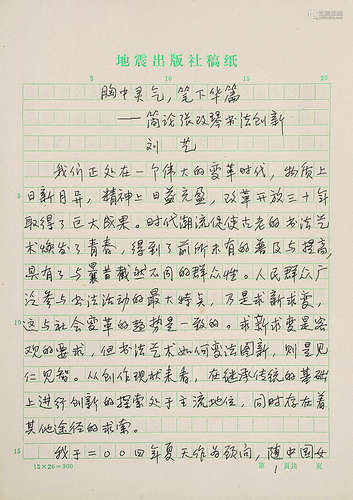 地震出版社稿纸
5 10 15 20
胸中灵气，笔下华篇
——简论张改琴书法创新
刘艺
我们正处在一个伟大的变革时代，物质上
5
日新月异，精神上日益充盈，改革开放三十年
取得了巨大成果。时代潮流促使古老的书法艺
术焕发了青春，得到了前所未有的普及与提高，
具有了与曩昔截然不同的群众性。人民群众广
泛参与书法活动的最大特点，乃是求新求变，
10
这与社会变革的趋势是一致的。求新求变是客
观的要求，但书法艺术如何变法图新，则是见
仁见智。从创作现状来看，在继承传统的基础
上进行创新的探索处于主流地位，同时存在着
其他途径的求索。
15
我于二〇〇四年夏天作为顾问，随中国女
15×20=300 第1页共 页